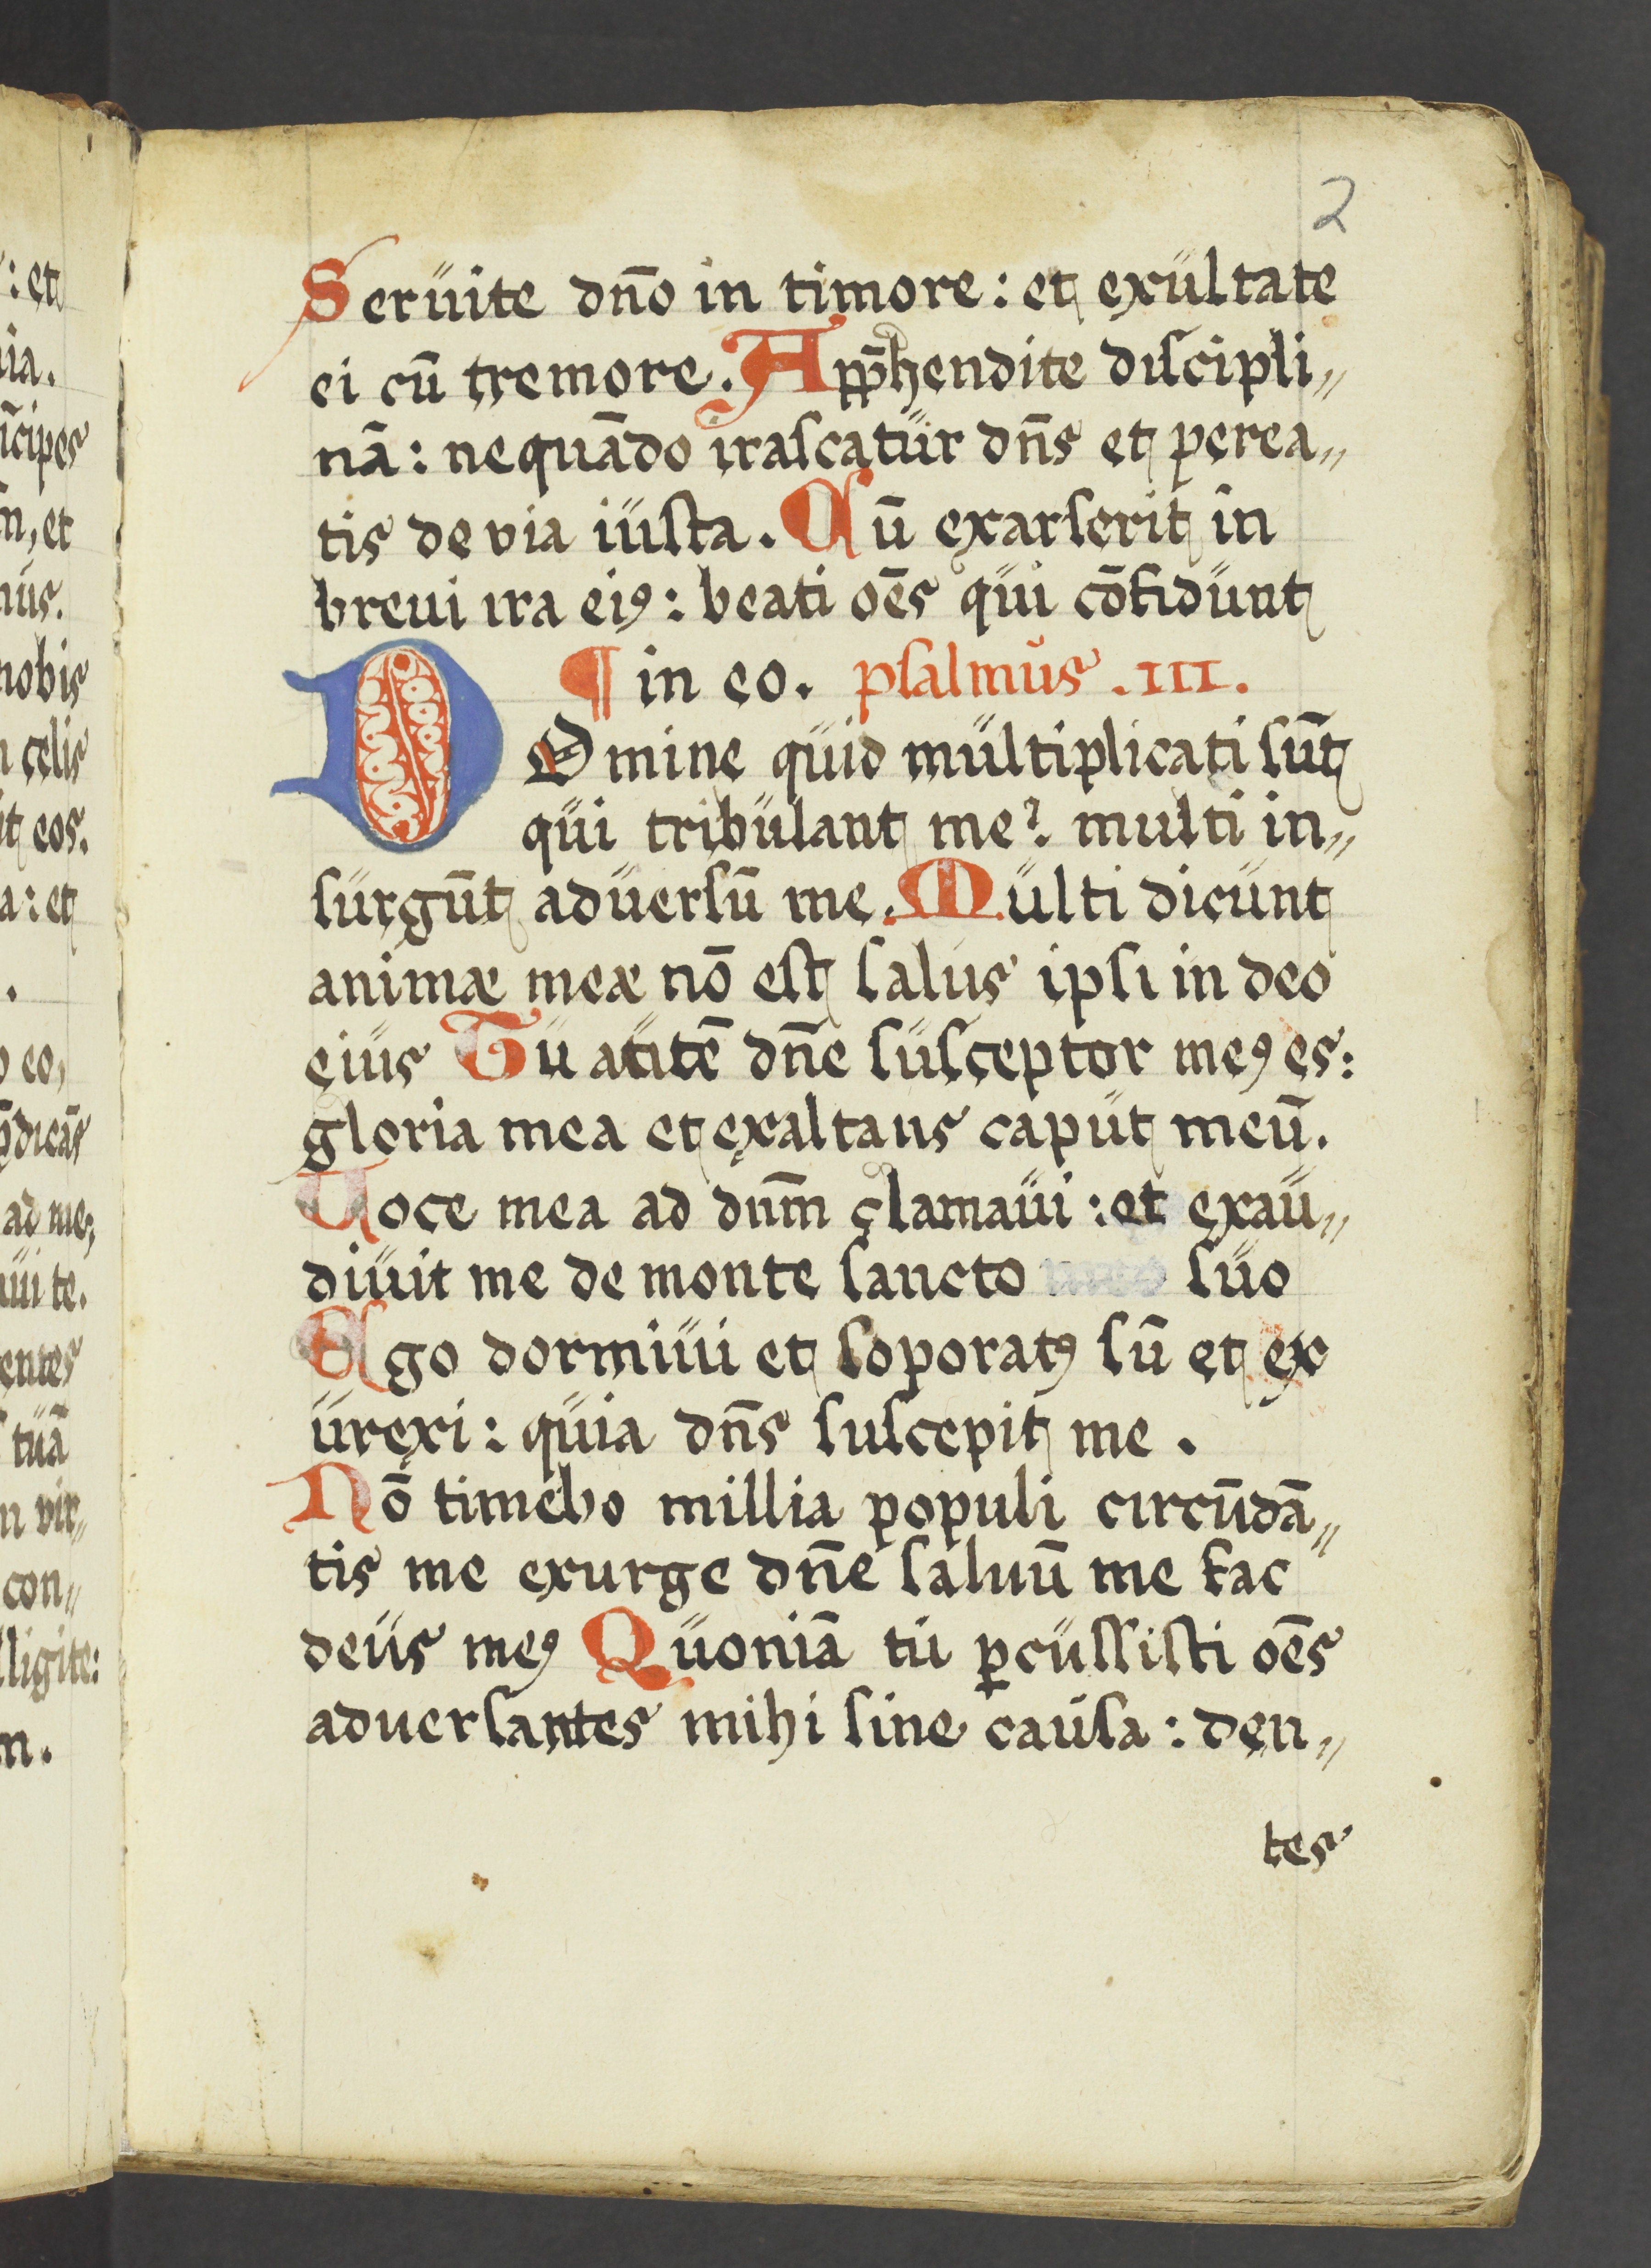 2
Seruite dn̄o in timore: et exultate
ei cū tremore. App̄hendite discipli„
nā: nequādo irascatur dn̄s et perea„
tis de via iusta. Cū exarserit in
breui ira eiꝰ: beati oēs qui cōfidunt
¶ in eo. psalmus .III.
DOmine quid multiplicati sūt
qui tribulant me? multi in„
surgūt aduersū me. Multi dicunt
animæ meæ nō est salus ipsi in deo
eius Tu autē dn̄e susceptor meꝰ es:
gloria mea et exaltans caput meū.
Uoce mea ad dnm̄ clamaui: et exau„
diuit me de monte sancto suo
Ego dormiui et soporatꝰ sū et ex
urexi: quia dn̄s suscepit me.
Nō timebo millia populi circūdā„
tis me exurge dn̄e saluū me fac
deus meꝰ Quoniā tu ꝑcussisti oēs
aduersantes mihi sine causa: den„
tes
: et
ia.
īcipes
n, et
nus.
nobis
n celis
it eos.
a: et
.
o eo,
p̄dicās
ad me;
ui te.
entes
tuā
n vir„
con„
lligite:
m.